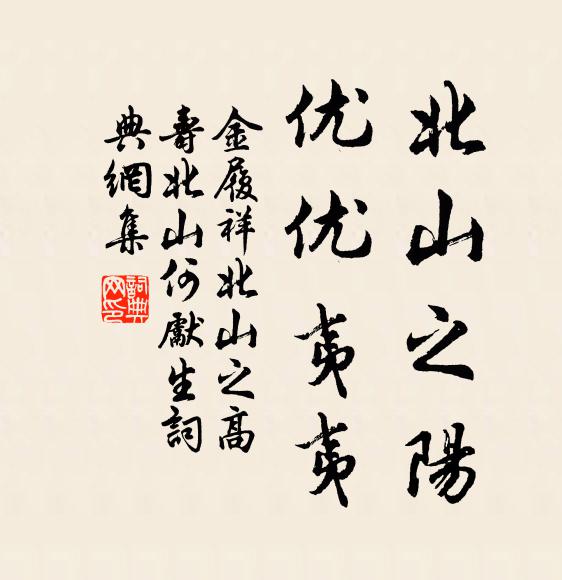 北山之陽
优优夷夷
金履祥北山之高
壽北山何獻生詞
典網集
詞典
网印